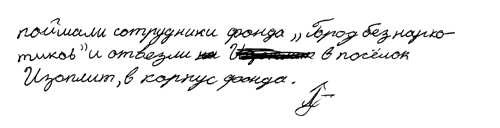 поймали сотрудники фонда „Город без нарко-
тиков" и отвезли в посёлок
Изоплит, в корпус фонда.